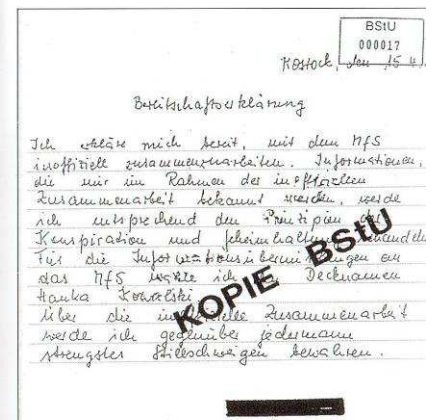 BStU
000017
Rostock, den 15.4.
Bereitschaftserklärung
Ich erkläre mich bereit, mit dem MfS
inoffiziell zusammenzuarbeiten. Informationen,
die mir im Rahmen der inoffiziellen
Zusammenarbeit bekannt werden, werde
ich entsprechend den Prinzipien der
Konspiration und Geheimhaltung behandeln.
Für die Informationsübermittlungen an
das MfS wähle ich den Decknamen
Hanka Kowalski.
Über die inoffizielle Zusammenarbeit
werde ich gegenüber jedermann
strengstes Stillschweigen bewahren.
KOPIE BStU